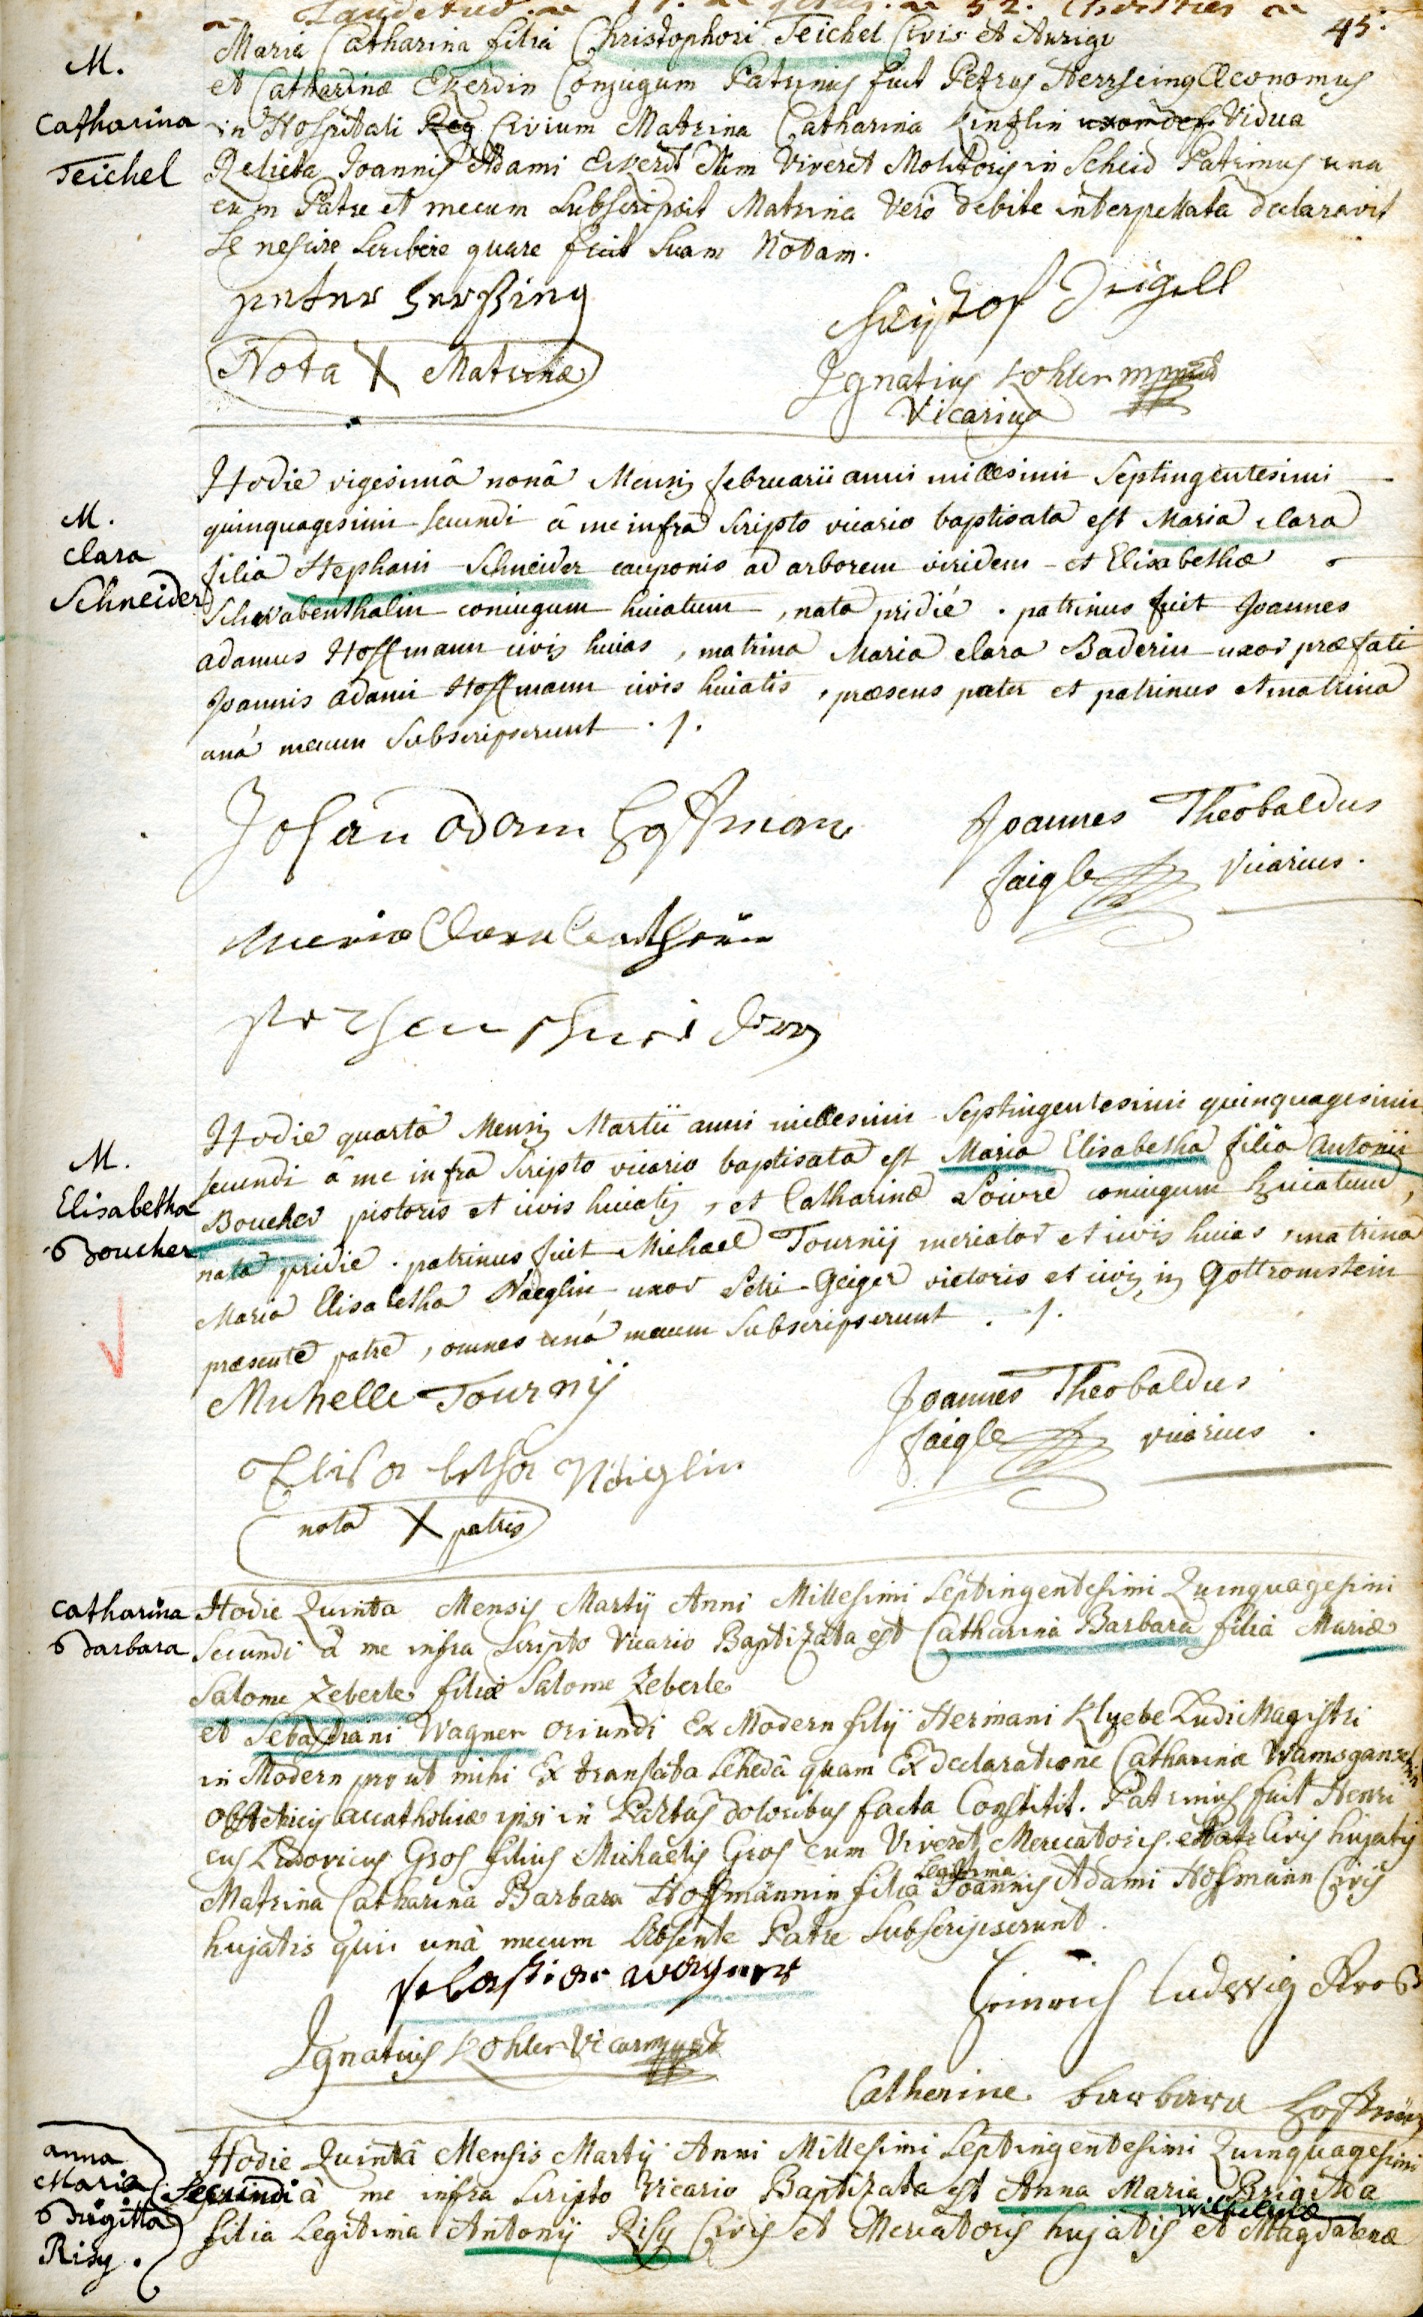 45.
M.
Catharina
Teichel
Maria Catharina filia Christophori Teichel Civis et Aurigæ
et Catharinæ Ekerdin Conjugum Patrinus fuit Petrus Herrseing Œconomus
in Hospitali Reg Civium Matrina Catharina Kintzlin Vidua
Relicta Joannis Adami Ekerdt dum Viveret Molitoris in Scheid Patrinus una
cum Patre et mecum Subscripsit Matrina Vero debite interpellata declaravit
Se nescire Scribere quare fecit Suam Notam.
peter herßing
Christof Deigell
Nota X Matrinæ
Ignatius Kohler mppria
Vicarius
M.
Clara
Schneider
Hodie vigesimâ nonâ Mensis februarii anni millesimi Septingentesimi
quinquagesimi secundi â me infra Scripto vicario baptisata est Maria clara
filia Stephani Schneider cauponis ad arborem viridem - et Elisabethæ
Schwabenthalin coniugum huiatum, nata pridie. patrinus fuit Joannes
adamus Hoffmann civis huias, matrina Maria clara Baderin uxor præfati
Joannis adami Hoffmann civis huiatis, præsens pater et patrinus et matrina
unâ mecum Subscripserunt ././
Johan adam Hoffman
Joannes Theobaldus
faigle vicarius.
Maria Clara
M.
Elisabetha
Boucher
Hodie quartâ Mensis Martii anni millesimi Septingentesimi quinquagesimi
secundi â me infra Scripto vicario baptisata est Maria Elisabetha filia Antonii
Boucher pistoris et civis huiatis, et Catharinæ Loivre coniugum huiatum,
nata pridie. patrinus fuit Michael Tournij mercator et civis huias, matrina
Maria Elisabetha Naeglin uxor Petri Geiger vietoris et civis in Gottromstein
præsente patre, omnes unâ mecum Subscripserunt ././
Muhelle Tournij
Joannes Theobaldus
faigle vicarius.
Elisabetha Näiglin
nota X patris
Catharina
Barbara
Hodie Quinta Mensis Martij Anni Millesimi Septingentesimi Quinquagesimi
Secundi â me infra Scripto Vicario Baptizata est Catharina Barbara filia Mariæ
Salome Zeberle filiæ Salome Zeberle
et Sebastiani Wagner oriundi Ex Modern filij Hermani Klyebe Ludi Magistri
in Modern prout mihi Ex Schedâ quam Ex declaratione Catharinæ Wamsganzin
Obstetricis accatholicæ ipsi in Partus doloribus facta Constitit. Patrinus fuit Henri
cus Ludovicus Gros filius Michaelis Gros cum Viveret Mercatoris Civis hujatis
Matrina Catharina Barbara Hoffmännin filia Legitima Joannis Adami Hoffmann Civis
hujatis qui unâ mecum Absente Patre Subscripserunt.
sebastian wagner
Heinrich Ludwig Groß
Ignatius Kohler Vicarius
Catherine barbara hoffmän
anna
Maria
Birgitta
Risy.
Hodie Quintâ Mensis Martij Anni Millesimi Septingentesimi Quinquagesimi
Secundi â me infra Scripto Vicario Baptizata est Anna Maria Brigitta
filia Legitima Antonij Risy Civis et Mercatoris hujatis et Magdalenæ
Wilhelmæ